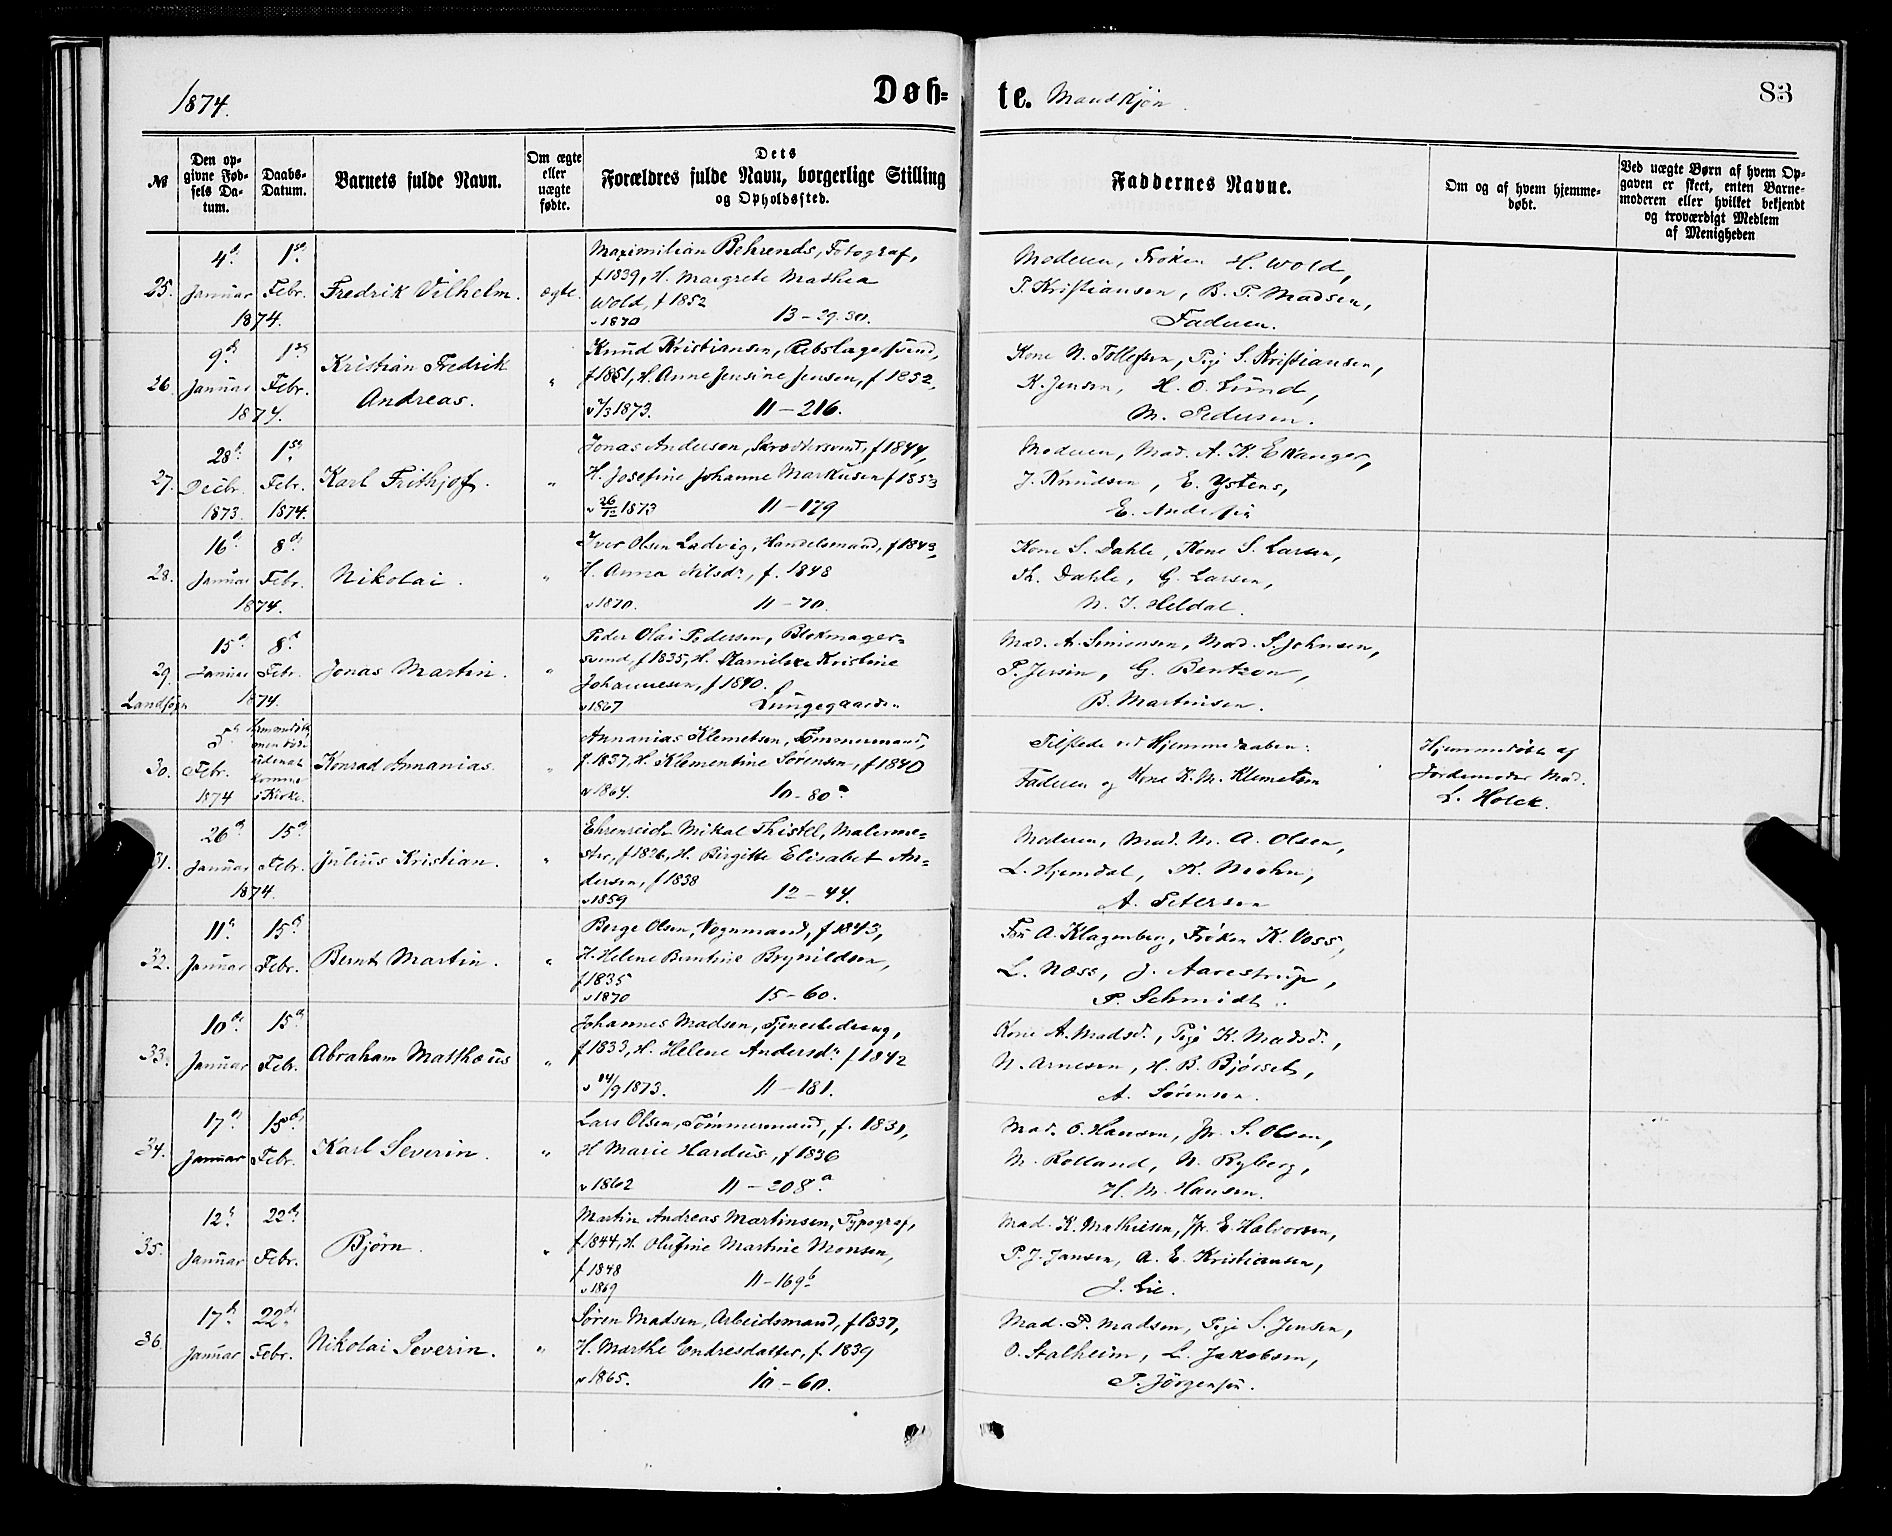 1874. Døb=te. Mandkjøn. 83
№
Den op=
givne Føb=
sels Da=
tum.
Daabs=
Datum.
Barnets fulde Navn.
Om ægte
eller
uægte
fødte.
Dets
Forældres fulde Navn, borgerlige Stilling
og Opholdssted.
Faddernes Navne.
Om og af hvem hjemme=
døbt.
Ved uægte Børn af hvem Op=
gaven er skeet, enten Barne=
moderen eller hvilket bekjendt
og troværdigt Medlem
af Menigheden
25. 4d Januar 1ste Febr. 1874.
Fredrik Vilhelm. ægte.
Maximilian Behrends, Fotograf,
f 1839, H. Margrete Mathea
Wold, f 1852
v 1870 13 – 29.30.
Moderen, Frøken H. Wold,
P. Kristiansen, B. P. Madsen,
Faderen.
26. 9d Januar 1ste Febr. 1874.
Kristian Fredrik
Andreas. "
Knud Kristiansen, Rebslagersvend,
f 1851, H. Anne Jensine Jensen, f 1852,
v 7/3 1873. 11 – 216.
Kone N. Tollefsen, Pige S. Kristiansen,
K. Jensen, H. O. Lund,
M. Pedersen.
27. 28d Decbr. 1873. 1ste Febr. 1874.
Karl Frithjof. "
Jonas Andersen, Skrædersvend, f 1844,
H. Josefine Johanne Markusen f 1853
v 26/12 1873 11 – 179
Moderen, Mad. A. K. Ekanger,
J. Knudsen, E. Ystens,
E. Andersen
28. 16d Januar 8d Febr. 1874.
Nikolai. "
Iver Olsen Ladvig, Handelsmand, f 1843,
H. Anna Nilsdr, f. 1848
v 1870. 11 – 70.
Kone S. Dahle, Kone S. Larsen,
Th. Dahle, G. Larsen,
N. J. Heldal.
29. Landsogn 15d Januar 8d Febr. 1874.
Jonas Martin. "
Peder Olai Pedersen, Blokmager=
svend, f 1835, H. Kristine
Johannesen, f 1840.
v 1867 Lungegaarden
Mad. A. Simonsen, Mad. S. Johnsen,
P. Jersin, G. Bentzon,
B. Martinsen.
30. 5d Febr. 1874
døde
uden at
komme
i Kirke.
Konrad Annanias. "
Annanias Klemetsen, Tømmermand,
f 1837, H. Klementine Sørensen, f 1840
v 1864. 10 – 80a
Tilstede ved Hjemmedaaben:
Faderen og Kone K. M. Klemetsen
Hjemmedøbt af
Jordemoder Mad.
L. Holck.
31. 26d Januar 15d Febr. 1874.
Julius Kristian. "
Ehrenreich Mikal Thistel, Malerme=
ster, f 1826, H. Birgitte Elisabet An=
dersen, f 1838
v 1859 12 – 44.
Moderen, Mad. M. A. Olsen,
L. Hjemdal, K. Mohn,
A. Petersen
32. 11d Januar 15d Febr.
Bernt Martin. "
Berge Olsen, Vognmand, f 1843,
H. Helene Bentine Brynildsen,
f 1835
v 1870 15 – 60.
Fru A. Klagenberg, Frøken K. Voss,
L. Næss, J. Aarestrup,
P. Schmidt.
33. 10d Januar 15d Febr.
Abraham Matthæus "
Johannes Madsen, Tjenestedreng,
f 1833, H. Helene Andersdr f 1842
v 14/9 1873. 11 – 181.
Kone A. Madsd., Pige K. Madsd.,
N. Arnesen, H. B. Bjørset,
A. Sørensen.
34. 17d Januar 15d Febr.
Karl Severin. "
Lars Olsen, Tømmermand, f. 1831,
H Marie Hardus, f 1836
v 1862 11 – 208a
Mad. O. Hansen, Jfr. S. Olsen,
M. Rolland, N. Ryberg,
H. M. Hansen.
35. 12d Januar 22d Febr.
Bjørn. "
Martin Andreas Martinsen, Typograf,
f 1844, H. Olufine Martine Monsen,
f 1848
v 1869 11 – 169b
Mad. K. Mathiesen, Jfr. E. Halvorsen,
P. J. Jansen, A. E. Kristiansen,
J. Lie.
36. 17d Januar 22d Febr.
Nikolai Severin. "
Søren Madsen, Arbeidsmand, f 1837,
H. Marthe Endresdatter, f. 1839
v 1865. 10 – 60.
Mad. P. Madsen, Pige S. Jensen,
O. Stalheim, L. Jakobsen,
P. Jörgensen.